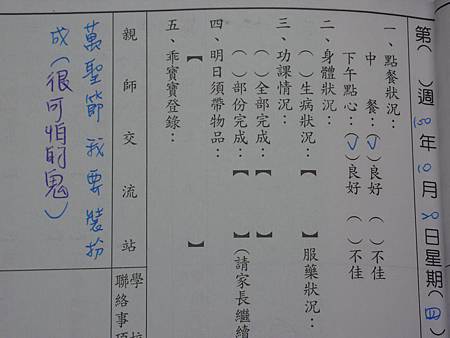 第( )週100年10月20日星期(四)
一、點餐狀況:
中 餐:(✓)良好 ( )不佳
下午點心:(✓)良好 ( )不佳
二、身體狀況:
( )生病狀況: 服藥狀況:
三、功課情況:
( )全部完成:【 】
( )部份完成:【 】(請家長繼續
四、明日須帶物品:
【 】
五、乖寶寶登錄:
親師交流站
學
聯絡事
萬聖節我要裝扮
成(很可怕的鬼)